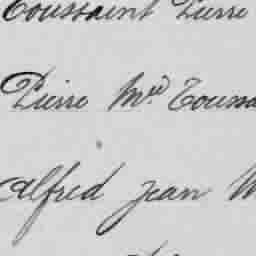 Toussaint Pierre
Pierre Mie Touss
Alfred Jean M